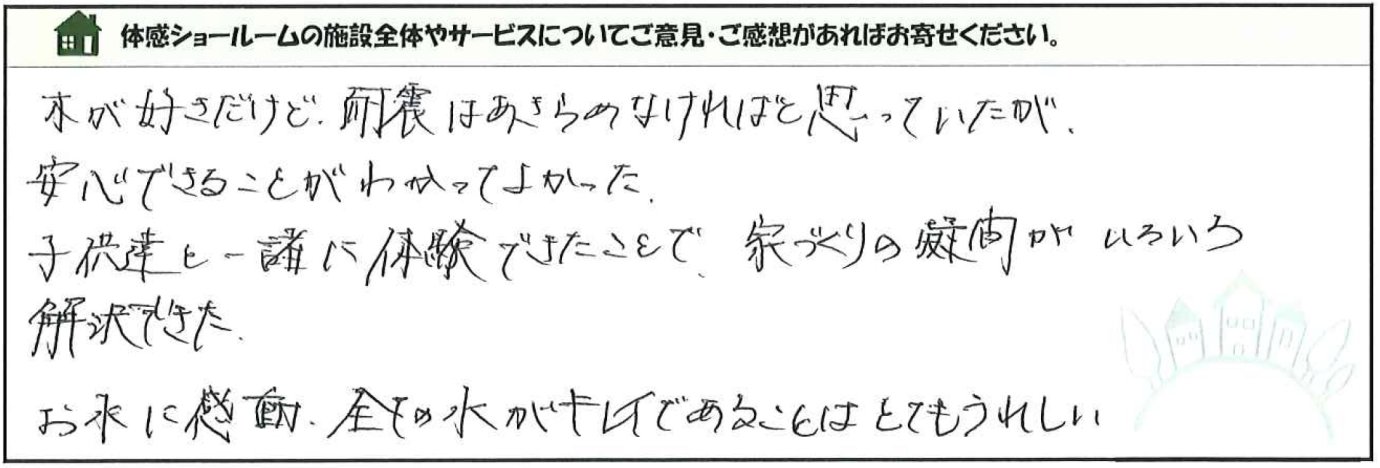 体感ショールームの施設全体やサービスについてご意見・ご感想があればお寄せください。
木が好きだけど、耐震はあきらめなければと思っていたが、
安心できることがわかってよかった。
子供達と一諸に体験できたことで、家づくりの疑問がいろいろ
解決できた。
お水に感動、全ての水がキレイであることはとてもうれしい